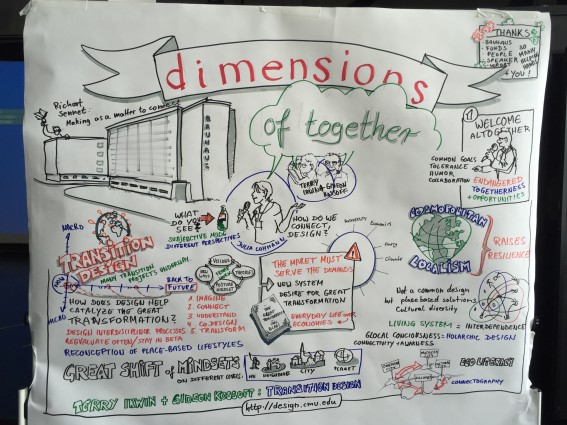 THANKS
BAUHAUS
FONDS
PEOPLE
SPEAKER
SO MANY
HELPING
HANDS
+ YOU!
dimensions
of together
Richart Sennet:
Making as a matter to connect
BAUHAUS
TERRY IRWIN + GIDEON KOSSOFF
WELCOME
ALTOGETHER
COMMON GOALS
TOLERANCE
HUMOR
COLLABORATION
ENDANGERED
TOGETHERNESS
+ OPPORTUNITIES
WHAT
DO YOU
SEE?
SUBJECTIVE MODE
DIFFERENT PERSPECTIVES
HOW DO WE
CONNECT,
DESIGN?
University
Economies
Energy
Climate
COSMOPOLITAN
LOCALISM
RAISES
RESILIENCE
MACRO
MICRO
TRANSITION
DESIGN
MAKE TRANSITION
PROJECTS UNIVERSITY
BACK TO
FUTURE
VISIONS
THEORIES
HOW DOES DESIGN HELP
CATALYZE THE GREAT
TRANSFORMATION?
1. IMAGINE
2. CONNECT
3. UNDERSTAND
4. CO.DESIGN
5. TRANSFORM
DESIGN INTERDISCIPLINAR PROCESSES
REEVALUATE OFTEN/STAY IN BETA
RECONCEPTION OF PLACE-BASED LIFESTYLES
THE MARKET MUST
SERVE THE DEMANDS
NEW SYSTEM
DESIRE FOR GREAT
TRANSFORMATION
EVERYDAY LIFE OVER
ECONOMIES
Not a common design
but place based solutions
Cultural diversity
LIVING SYSTEM = INTERDEPENDENCE
GLOCAL CONCIOUSNESS = HOLARCHIC DESIGN
CONNECTIVITY + AWARNESS
GREAT SHIFT of MINDSETS
ON DIFFERENT LEVELS:
ME
NEIGHBORS
CITY
PLANET
ECO LITERACY
CONNECTOGRAPHY
TERRY IRWIN + GIDEON KOSSOFF: TRANSITION DESIGN
http://design.cmu.edu